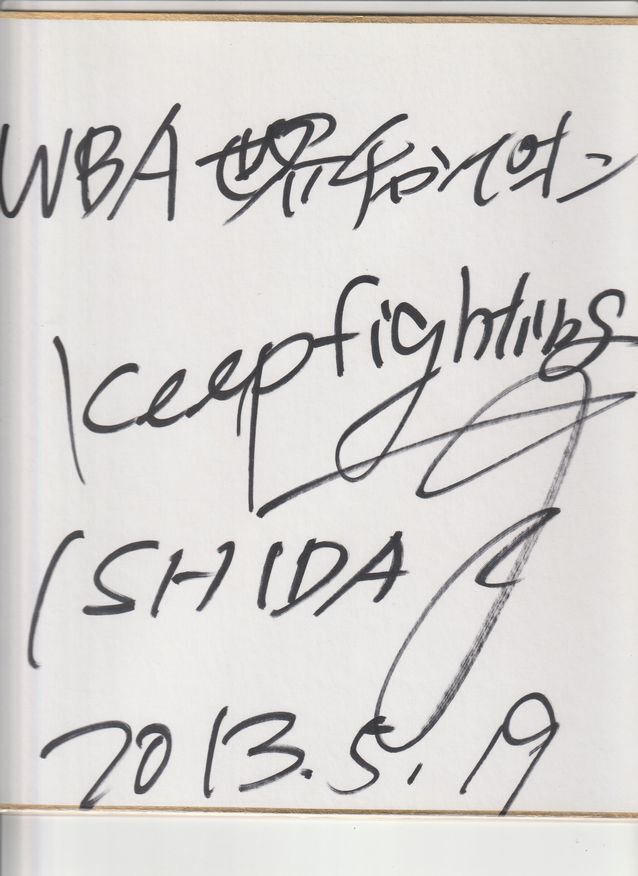 WBA 世界
Keep fighting
ISHIDA
2013.5.19